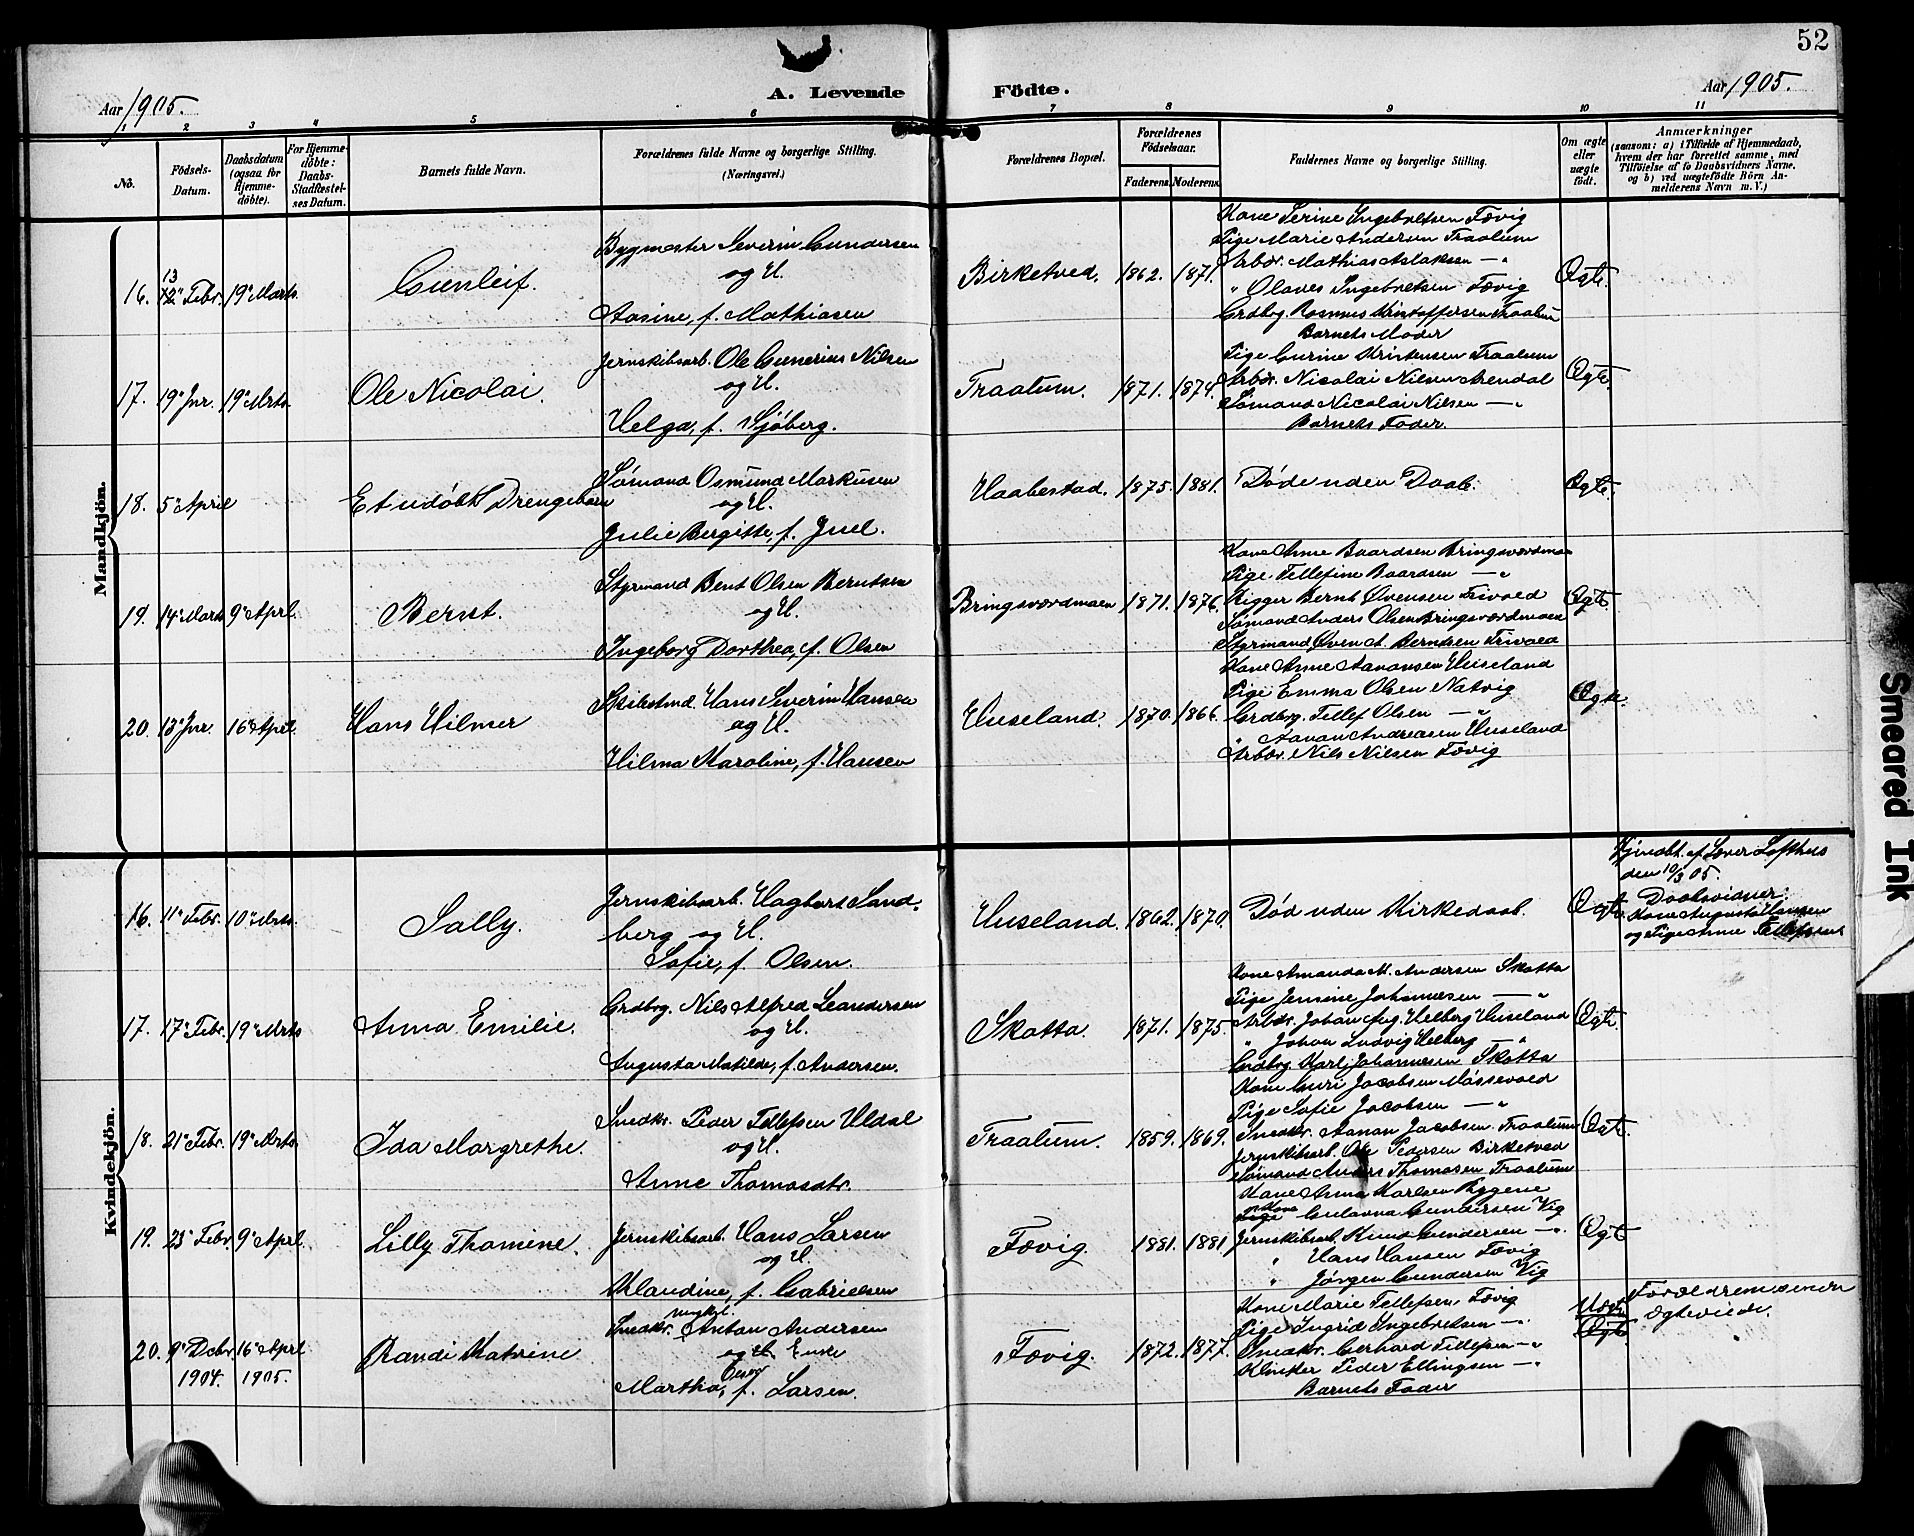 52
Aar 1905.
A. Levende Födte.
Aar 1905.
1 2 3 4 5 6 7 8 9 10 11
No.
Födsels-Datum.
Daabsdatum (ogsaa for Hjemme-döbte).
For Hjemme-döbte: Daabs-Stadfæstel-ses Datum.
Barnets fulde Navn.
Forældrenes fulde Navne og borgerlige Stilling. (Næringsvei.)
Forældrenes Bopæl.
Forældrenes Födselsaar.
Faderens. Moderens.
Faddernes Navne og borgerlige Stilling.
Om ægte eller uægte födt.
Anmærkninger
(saasom: a) i Tilfælde af Hjemmedaab, hvem der har forrettet samme, med Tilföielse af to Daabsvidners Navne. og b) ved uægtefödte Börn Anmelderens Navn m. V.)
Mandkjön.
16. 13 12" Febr. 19" Marts
Gunleif.
Bygmester Severin Gundersen
og H.
Aasine, f. Mathiasen
Birketved. 1862. 1871.
Kone Serine Ingebretsen Fævig
Pige Marie Andersen Traalum
Arbdr. Mathias Aslaksen — "
" Olaves Ingebretsen Fævig
Grdbrg. Rasmus Kristoffersen Traalum
Barnets Moder
Ægte.
17. 19" Jnr. 19" Mrts
Ole Nicolai.
Jernskibsarb. Ole Gunerius Nilsen
og H.
Helga, f. Sjöberg.
Traalum. 1871. 1874.
Pige Gurine Kristensen Traalum
Arbdr. Nicolai Nilsen Arendal
Sømand Nicolai Nilsen — "
Barnets Fader.
Ægte
18. 5" April
Et udöbt Drengebarn
Sømand Osmund Markusen
og H.
Julie Bergitte, f. Juel.
Haabestad. 1875. 1881.
Døde uden Daab.
Ægte.
19. 14" Marts 9" Aprl.
Bernt.
Styrmand Bent Olsen Berntsen
og H.
Ingeborg Dorthea, f. Olsen
Bringsværdmoen 1871. 1876.
Kone Anne Baardsen Bringsværdmoen
Pige Tellefine Baardsen — "
Rigger Bernt Øvensen Trivold
Sømand Anders Olsen Bringsværdmoen
Styrmand Øven A. Berntsen
Ægte
20. 13" Jnr. 16" April.
Hans Hilmer
Skibstmd. Hans Severin Hansen
og H.
Hilma Karoline, f. Hansen
Huseland. 1870. 1866.
Kone Anne Aanonsen Huseland
Pige Emma Olsen Natvig
Grdbrg. Tellef Olsen — "
" Aanon Andreasen Huseland
Arbdr. Nils Nilsen Fævig
Ægte.
Kvindekjön.
16. 11" Febr. 10" Mrts.
Sally.
Jernskibsarb. Hagbart Sand-
berg og H.
Sofie, f. Olsen.
Huseland. 1862. 1870.
Død uden Kirkedaab.
Ægte
Hjmdøbt. af Lærer Lofthus
den 10/3 05.
Daabsvidner:
Kone Augusta Hansen
og Pige Anne Tellefsen
17. 17" Febr. 19" Mrts
Anna Emilie.
Grdbrg. Nils Alfred Leandersen
og H.
Augusta Matilde, f. Andersen.
Skatta. 1871. 1875.
Kone Amanda M. Andersen Skatta
Pige Jensine Johannesen — "
Arbdr. Johan Aug. Helberg Huseland
" Johan Ludvig Helberg — "
Grdbrg. Karl Johannesen Skatta
Ægte.
18. 21" Febr. 19" Mrts
Ida Margrethe.
Snedkr. Peder Tellefsen Uldal
og H.
Anne Thomasdtr.
Traalum. 1859. 1869.
Kone Guri Jacobsen Måssevold
Pige Sofie Jacobsen — "
Snedkr. Aanon Jacobsen. Traalum
Jernskibsarb. Ole Pedersen Birketved
Sømand Anders Thomasen Traalum
Ægte.
19. 23" Febr. 9" Aprl.
Lilly Thomine.
Jernskibsarb. Hans Larsen
og H.
Klandine, f. Gabrielsen
Fævig. 1881. 1881.
Kone Anna Karlsen Rygene
Kone Pige Gulanna Gundersen Vig
Jernskibsarb. Knud Gundersen — "
" Hans Hansen Fævig
" Jörgen Gundersen Vig
Ægte
20. 9" Decbr 1904. 16" April 1905.
Randi Katrine
Ungkrl.
Snedkr. Anton Andersen
og H. Enke
Martha, f. Larsen.
Fævig. 1872. 1877.
Kone Marie Tellefsen Fævig
Pige Ingrid Ingebretsen — "
Snedkr. Gerhard Tellefsen — "
Klinker Peder Ellingsen — "
Barnets Fader
Uægte
Ægte
Forældrene senere
ægteviede.
Smeared Ink